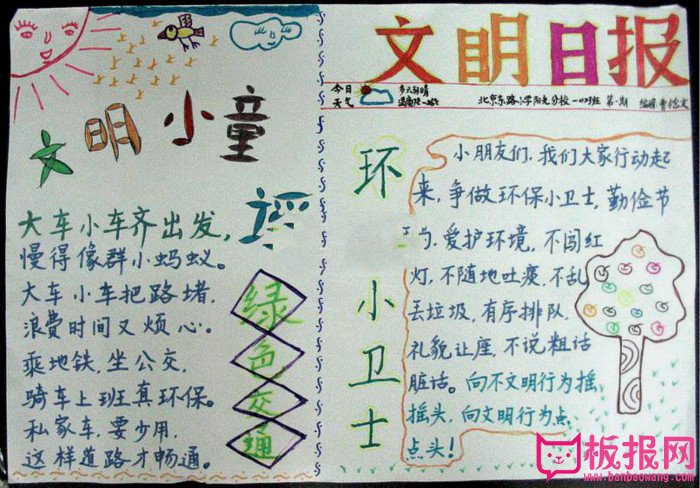 文明日报
今日
天气
多云转晴
北京东路小学阳光分校一(17)班 第一期
文明小童谣
大车小车齐出发,
慢得像群小蚂蚁。
大车小车把路堵,
浪费时间又烦心。
乘地铁,坐公交,
骑车上班真环保。
私家车,要少用,
这样道路才畅通。
绿色交通
环小卫士
小朋友们,我们大家行动起
来,争做环保小卫士,勤俭节
约,爱护环境,不闯红
灯,不随地吐痰,不乱
丢垃圾,有序排队,
礼貌让座,不说粗话
脏话。向不文明行为摇
摇头,向文明行为点
点头!
板报网
www.banbaowang.com